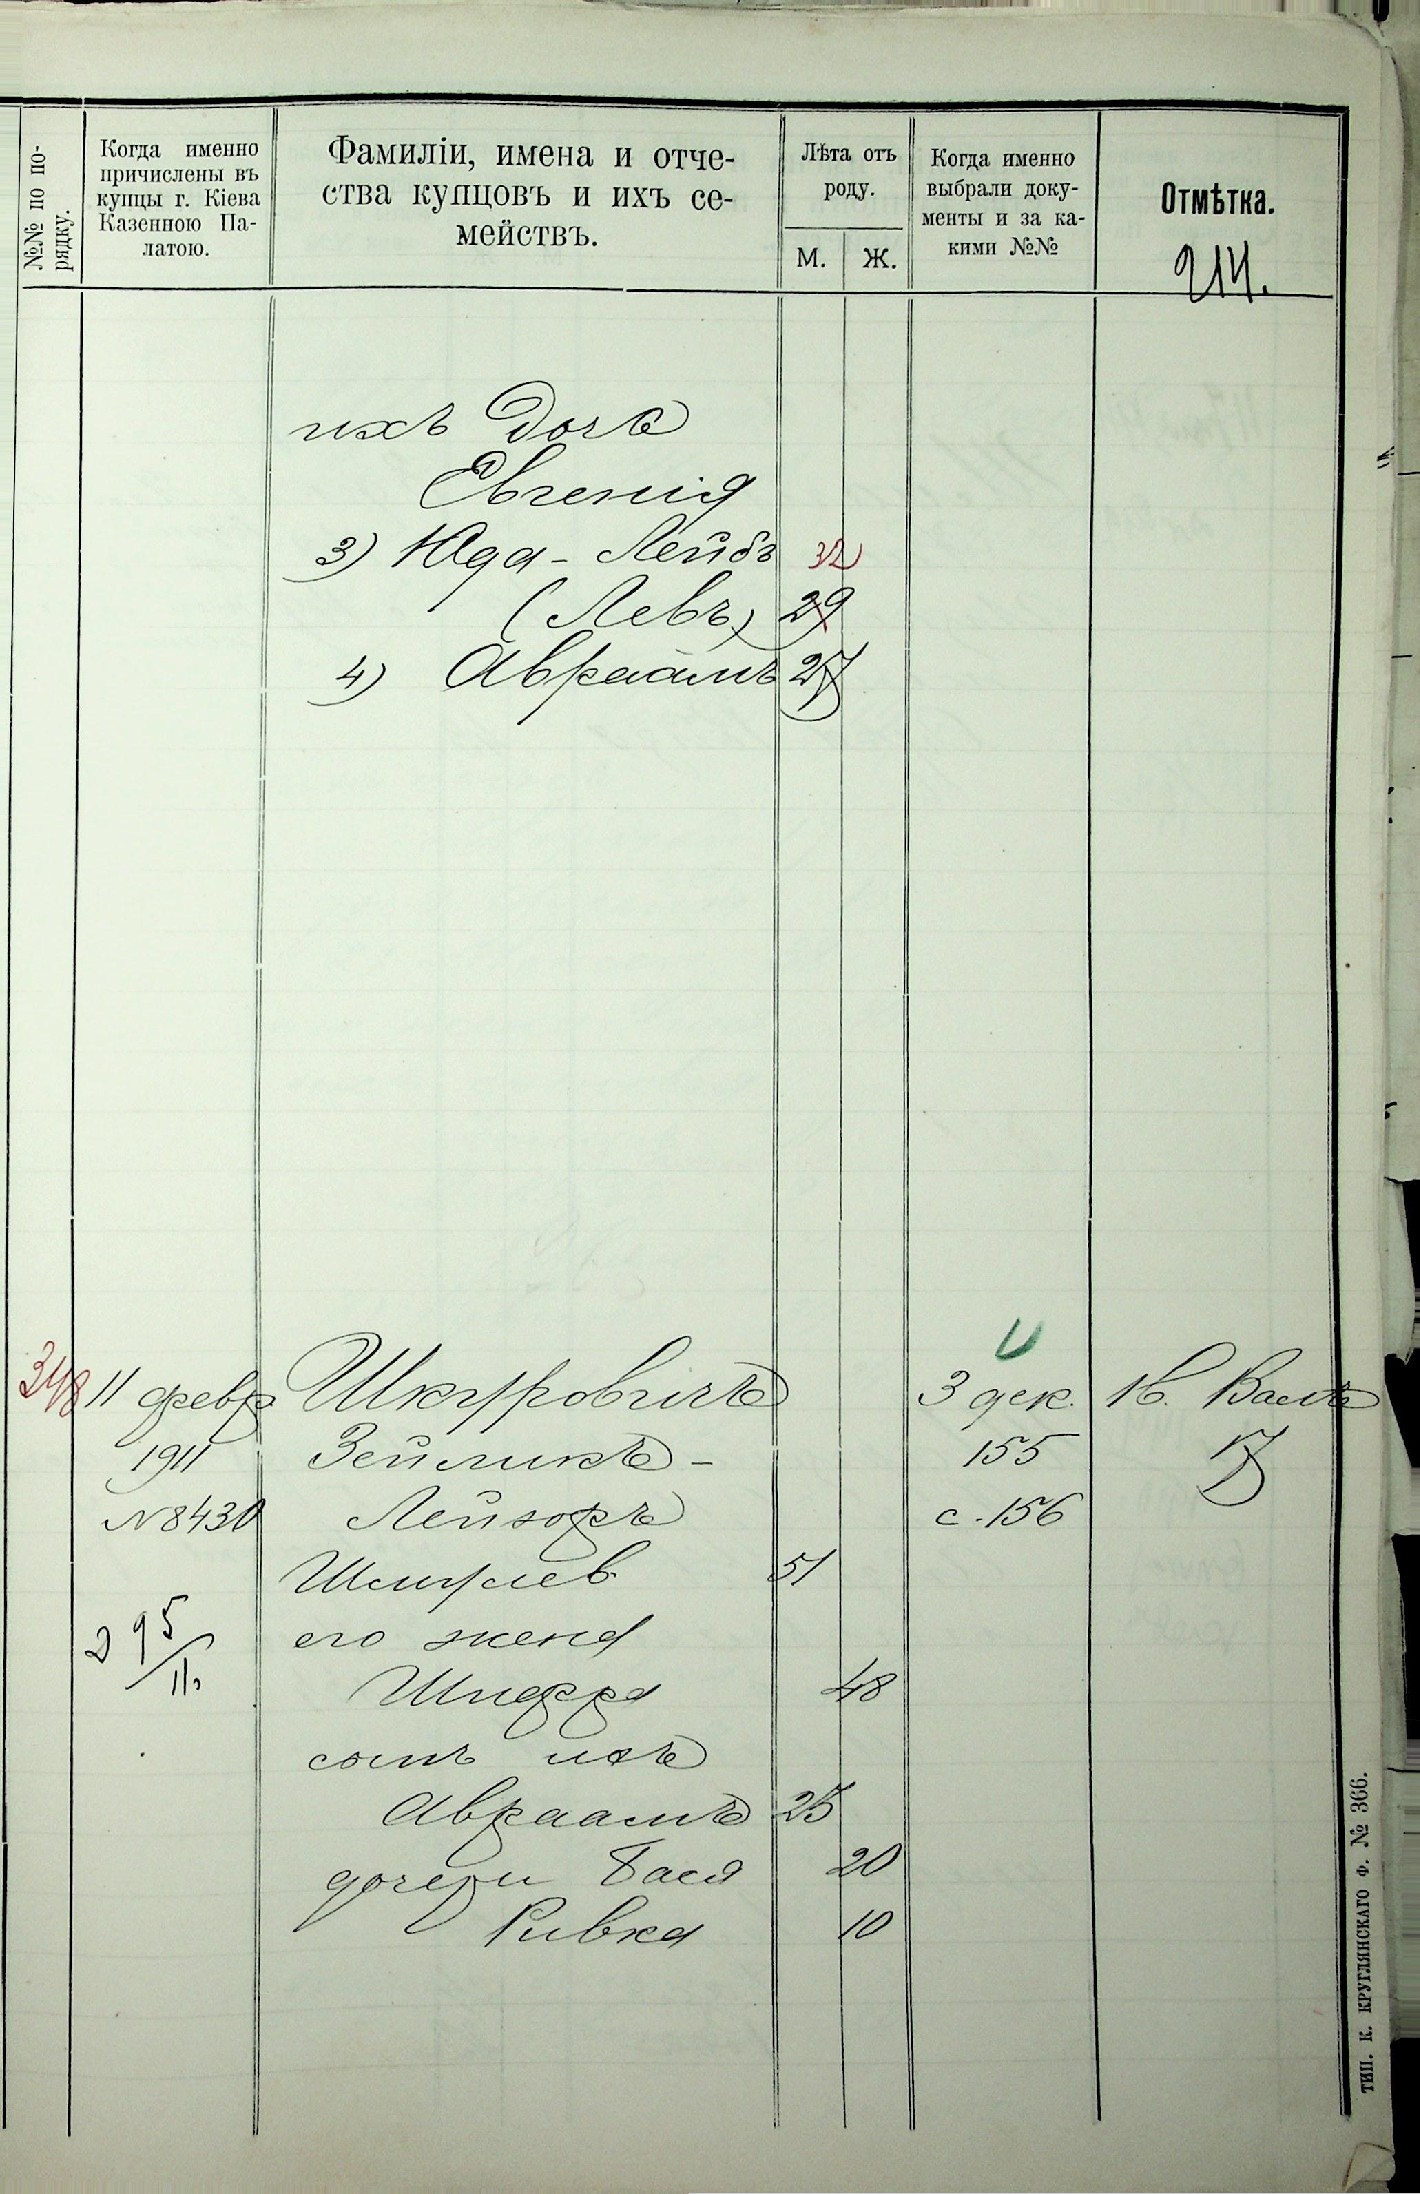 №№ по по-
рядку.
Когда именно
причислены въ
купцы г. Кіева
Казенною Па-
латою.
Фамиліи, имена и отче-
ства купцовъ и ихъ се-
мействъ.
Лѣта отъ
роду.
М. Ж.
Когда именно
выбрали доку-
менты и за ка-
кими №№
Отмѣтка.
214.
ихъ дочь
Евгенія
3) Юда - Лейбъ 32
(Левъ) 29
4) Авраамъ 27
348 11 февр Шкуровичъ 3 дек.
1911 Зейликъ - 155
№8430 Лейзоръ с. 156
Шмулев 51
его жена
295/11. Шифра 48
сынъ ихъ
Авраамъ 25
дочери Бася 20
Ривка 10
ТИП. К. КРУГЛЯНСКАГО Ф. № 366.